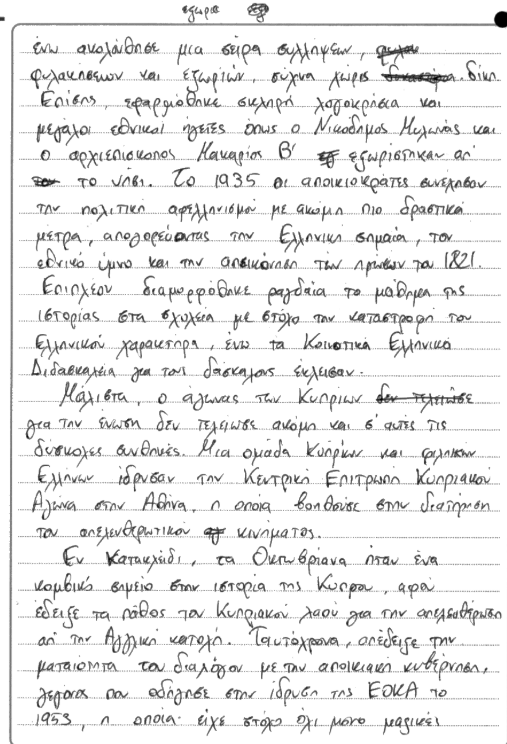 εξωρια
ενω ακολούθησε μια σειρά συλλήψεων,
φυλακήσεων και εξωριών, συχνα χωρίς δίκη.
Επίσης, εφαρμόθηκε σκληρή λογοκρησία και
μεγάλοι εθνικοί ηγέτες όπως ο Νικόδημος Μυλωνάς και
ο αρχιεπίσκοπος Μακαρίος Β' εξωρίστηκαν απ'
το νησι. Το 1935 οι αποικιοκράτες συνέχησαν
την πολιτική αφελληνισμού με ακόμη πιο δραστικά
μέτρα, απαγορεύοντας την Ελληνική σημαία, τον
εθνικό ύμνο και την απεικόνηση των ηρώων του 1821.
Επιπλέον διαμορφόθηκε ραγδαία το μάθημα της
ιστορίας στα σχολεία με στόχο την καταστροφή του
Ελληνικού χαρακτήρα, ένω τα Κοινοτικά Ελληνικά
Διδασκαλεία για τους δάσκαλους έκλεισαν.
Μάλιστα, ο αγωνας των Κυπρίων δεν τελείωσε
για την ένωση δεν τελείωσε ακόμη και σ' αυτες τις
δύσκολες συνθήκες. Μια ομάδα Κυπρίων και φιλικών
Ελλήνων ίδρυσαν την Κεντρική Επιτροπη Κυπριακού
Αγώνα στην Αθήνα, η οποία βοηθούσε στην διατήρηση
του απελευθερωτικού κινήματος.
Εν Κατακλείδι, τα Οκτωβριανα ήταν ένα
κομβικό σημείο στην ιστορία της Κύπρου, αφού
έδειξε τα πάθος του Κυπριακού λαού για την απελευθέρωση
απ' την Αγγλική κατοχή. Ταυτόχρονα, απέδειξε την
ματαιότητα του διαλόγου με την αποικιακή κυβέρνηση,
γεγονός που οδήγησε στην ίδρυση της ΕΟΚΑ το
1953, η οποία είχε στόχο όχι μονο μαζικές